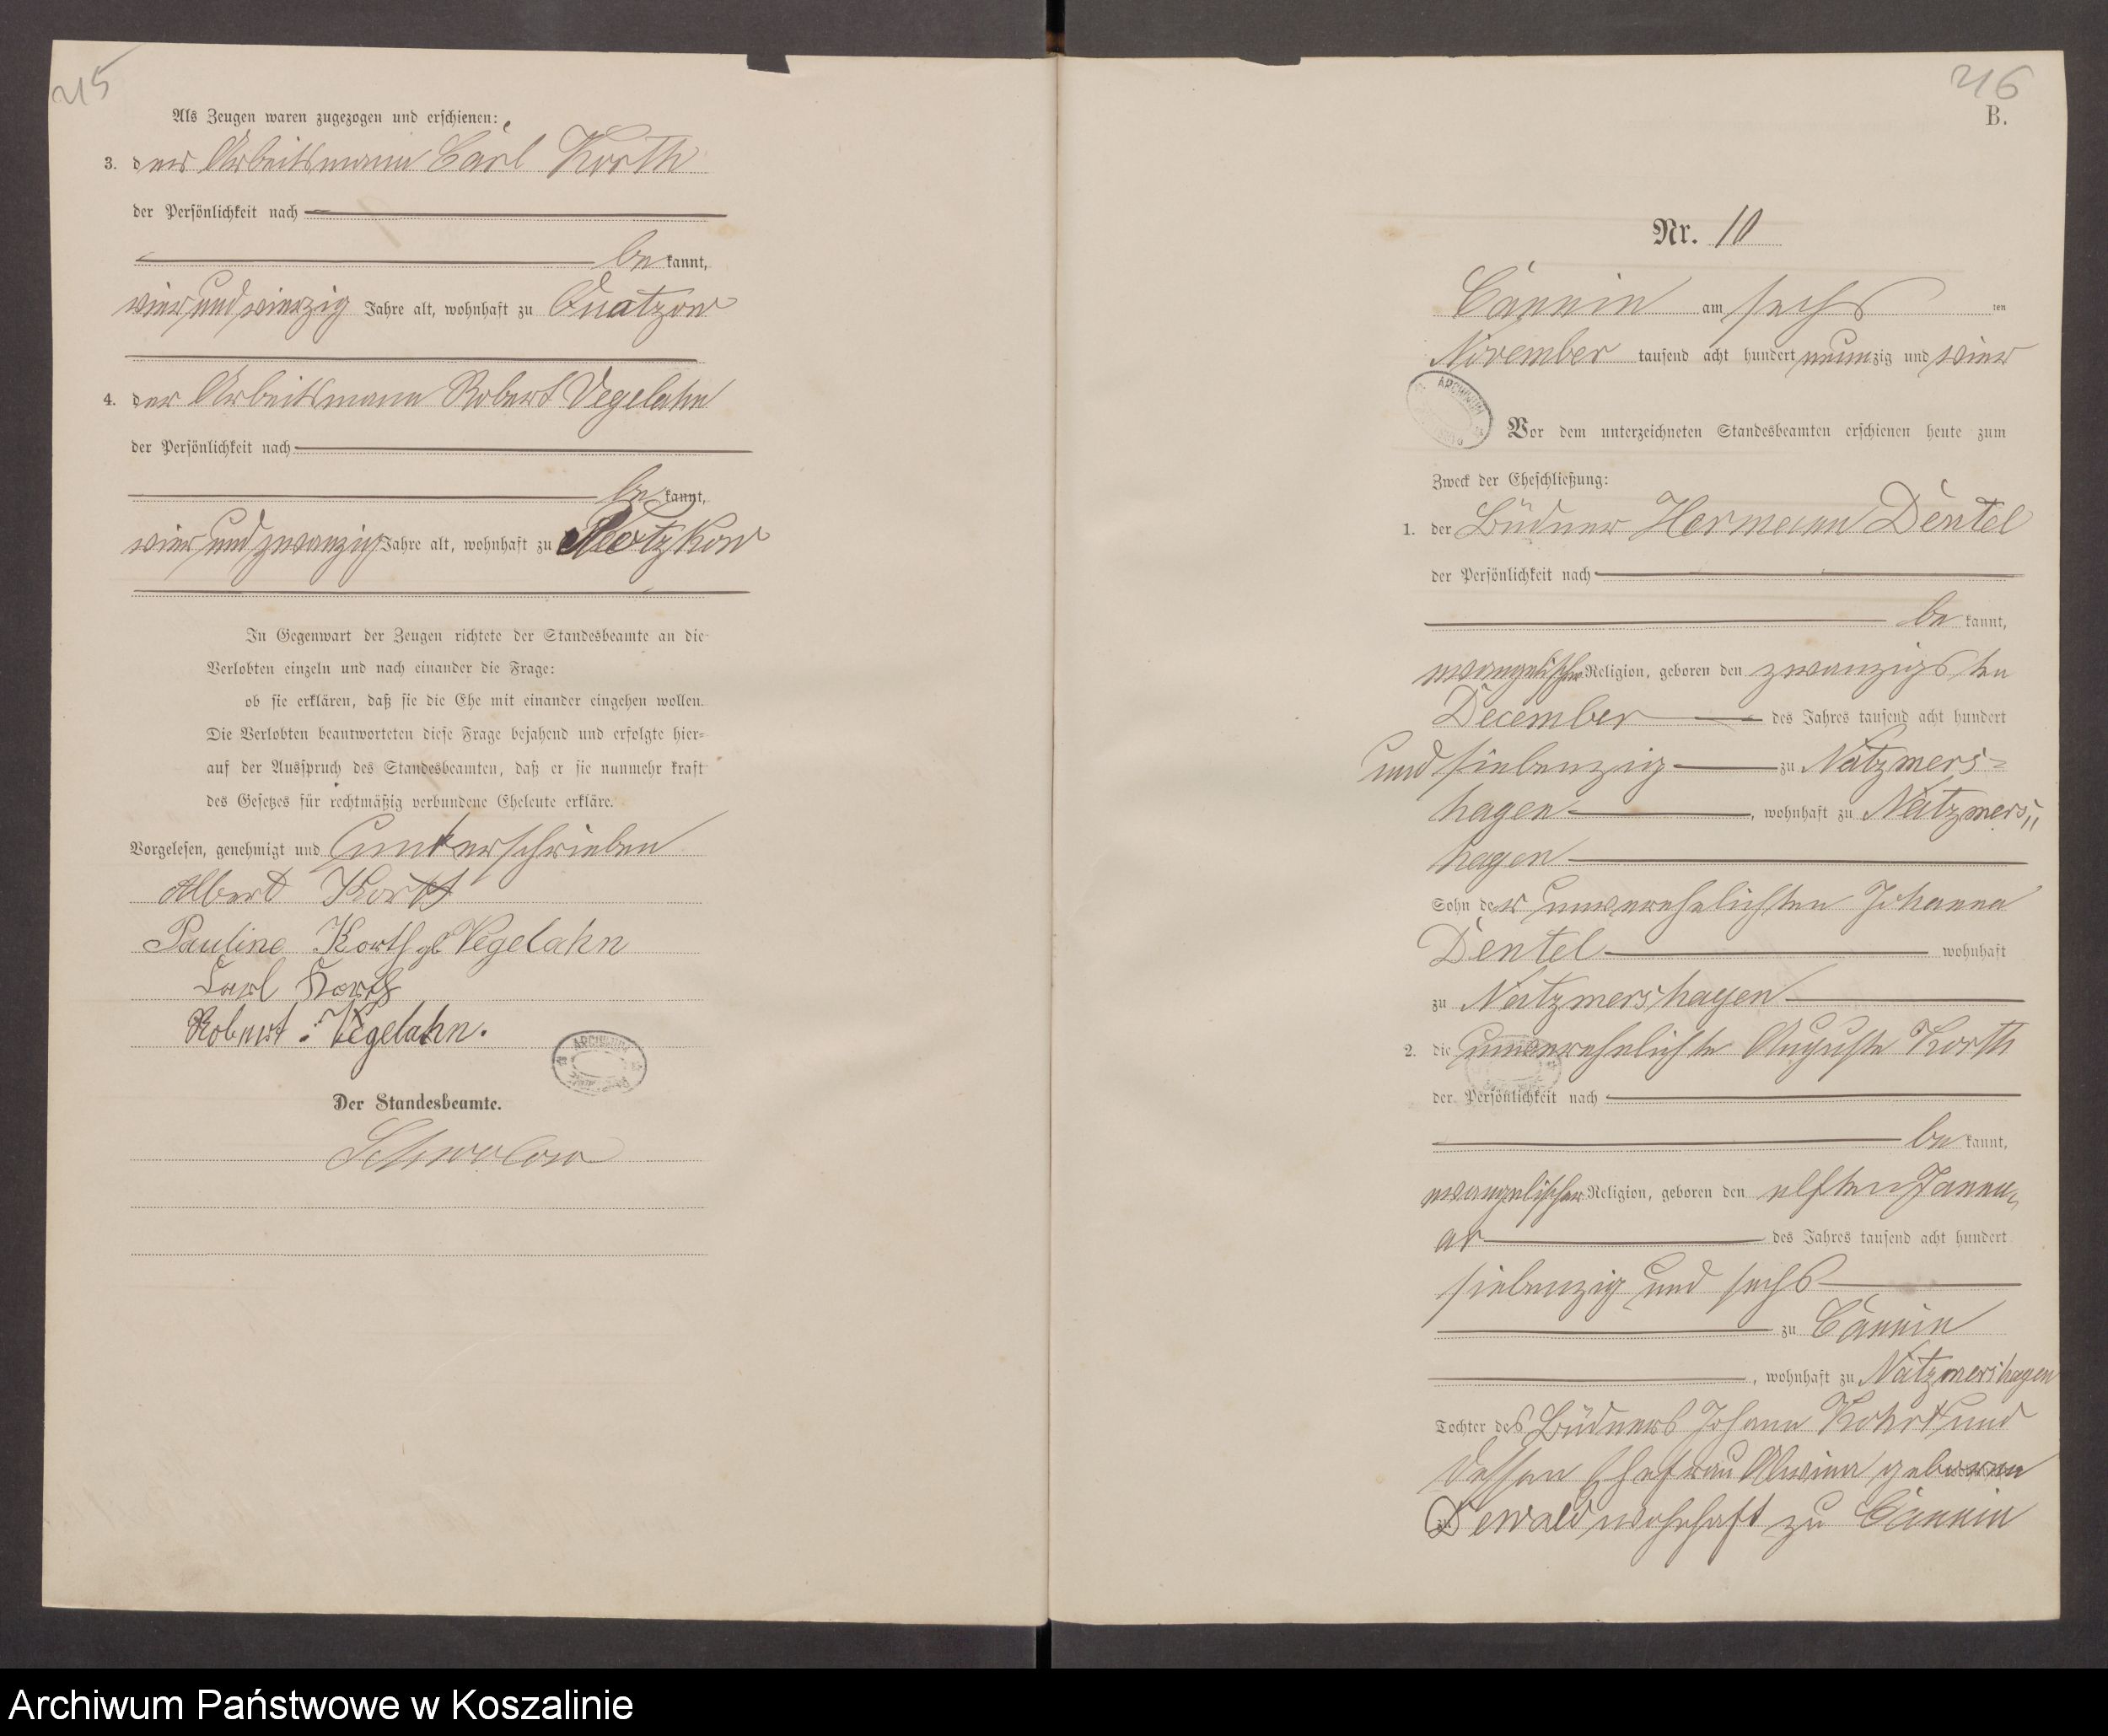 215
Als Zeugen waren zugezogen und erschienen:
3. der Arbeitsmann Carl Korth
der Persönlichkeit nach
be kannt,
vier und vierzig Jahre alt, wohnhaft zu Quatzow
4. der Arbeitsmann Robert Vegelahn
der Persönlichkeit nach
be kannt,
vier und zwanzig Jahre alt, wohnhaft zu Notzkow
In Gegenwart der Zeugen richtete der Standesbeamte an die
Verlobten einzeln und nach einander die Frage:
ob sie erklären, daß sie die Ehe mit einander eingehen wollen.
Die Verlobten beantworteten diese Frage bejahend und erfolgte hier=
auf der Ausspruch des Standesbeamten, daß er sie nunmehr kraft
des Gesetzes für rechtmäßig verbundene Eheleute erkläre.
Vorgelesen, genehmigt und unterschrieben
Albert Korth
Pauline Korth gb Vegelahn
Carl Korth
Robert Vegelahn.
ARCHIWUM
Der Standesbeamte.
216
B.
Nr. 10
Cannin am sechs ten
November tausend acht hundert neunzig und vier
ARCHIWUM
Vor dem unterzeichneten Standesbeamten erschienen heute zum
Zweck der Eheschließung:
1. der Büdner Hermann Dentel
der Persönlichkeit nach
be kannt,
evangelischer Religion, geboren den zwanzigsten
December des Jahres tausend acht hundert
und siebenzig zu Natzmers=
hagen, wohnhaft zu Natzmers„
hagen
Sohn der unverehelichten Johanna
Dentel wohnhaft
zu Natzmershagen
2. die unverehelichte Auguste Korth
der Persönlichkeit nach
be kannt,
evangelischer Religion, geboren den elften Janu„
ar des Jahres tausend acht hundert
siebenzig und sechs
zu Cannin
, wohnhaft zu Natzmershagen
Tochter des Büdners Johann Kohrt und
dessen Ehefrau Alwine geborene
Dewald wohnhaft zu Cannin
Archiwum Państwowe w Koszalinie